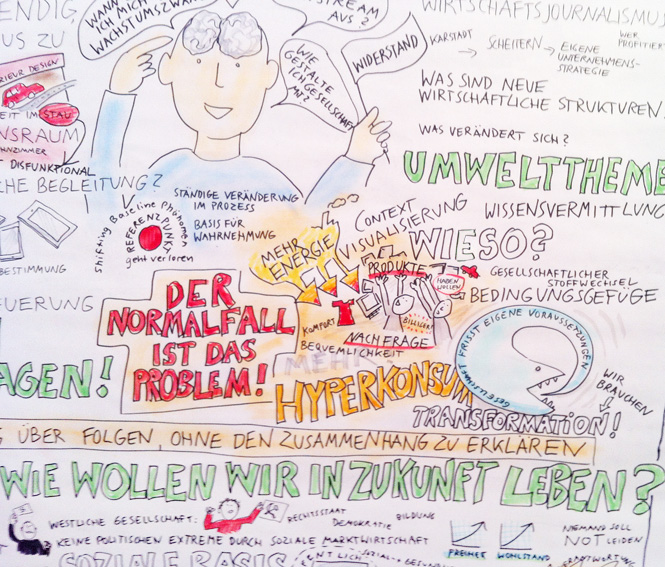 WANN
ICH MICH
WACHSTUMSZWA
STREAM
AUS?
WIE
GESTALTE
ICH GESELLSCHAFT
MIT?
WIDERSTAND
WIRTSCHAFTSJOURNALISMU
KARSTADT
SCHEITERN
EIGENE
UNTERNEHMENS-
STRATEGIE
WER
PROFITIER
WAS SIND NEUE
WIRTSCHAFTLICHE STRUKTUREN
WAS VERÄNDERT SICH?
UMWELTTHEME
WISSENSVERMITTLUNG
ENDIG
US ZU
RIEUR DESIGN
EIT IM STAU
NSRAUM
HNZIMMER
T DISFUNKTIONAL
CHE BEGLEITUNG?
BESTIMMUNG
EUERUNG
AGEN!
Shifting Baseline Phänomen
REFERENZPUNKT
geht verloren
STÄNDIGE VERÄNDERUNG
IM PROZESS
BASIS FÜR
WAHRNEHMUNG
DER
NORMALFALL
IST DAS
PROBLEM!
MEHR
ENERGIE
CONTEXT
VISUALISIERUNG
PRODUKTE
HABEN
WOLLEN
BILLIGER!
NACHFRAGE
KOMFORT
BEQUEMLICHKEIT
MEHR
HYPERKONSUM
WIESO?
GESELLSCHAFTLICHER
STOFFWECHSEL
BEDINGUNGSGEFÜGE
GESELLSCHAFT FRISST EIGENE VORAUSSETZUNGEN
WIR
BRAUCHEN
TRANSFORMATION!
G ÜBER FOLGEN, OHNE DEN ZUSAMMENHANG ZU ERKLÄREN
WIE WOLLEN WIR IN ZUKUNFT LEBEN?
WESTLICHE GESELLSCHAFT:
RECHTSSTAAT
DEMOKRATIE
BILDUNG
KEINE POLITISCHEN EXTREME DURCH SOZIALE MARKTWIRTSCHAFT
FREIHEIT
WOHLSTAND
NIEMAND SOLL
NOT LEIDEN
SOZIALE BASIS